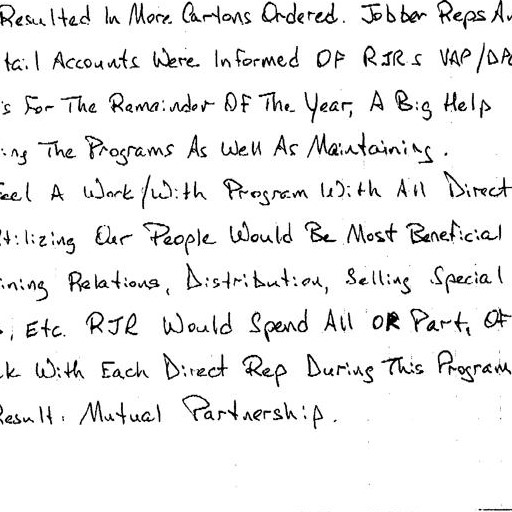 Resulted In More Cartons Ordered. Jobber Reps
tail Accounts Were Informed OF RJRs VAP/
s For The Remainder OF The Year, A Big Help
ing The Programs As Well As Maintaining.
eel A Work/With Program With All Direct
tilizing Our People Would Be Most Beneficial
ining Relations, Distribution, Selling Special
, Etc. RJR Would Spend All OR Part, OF
k With Each Direct Rep During This Program
Result. Mutual Partnership.